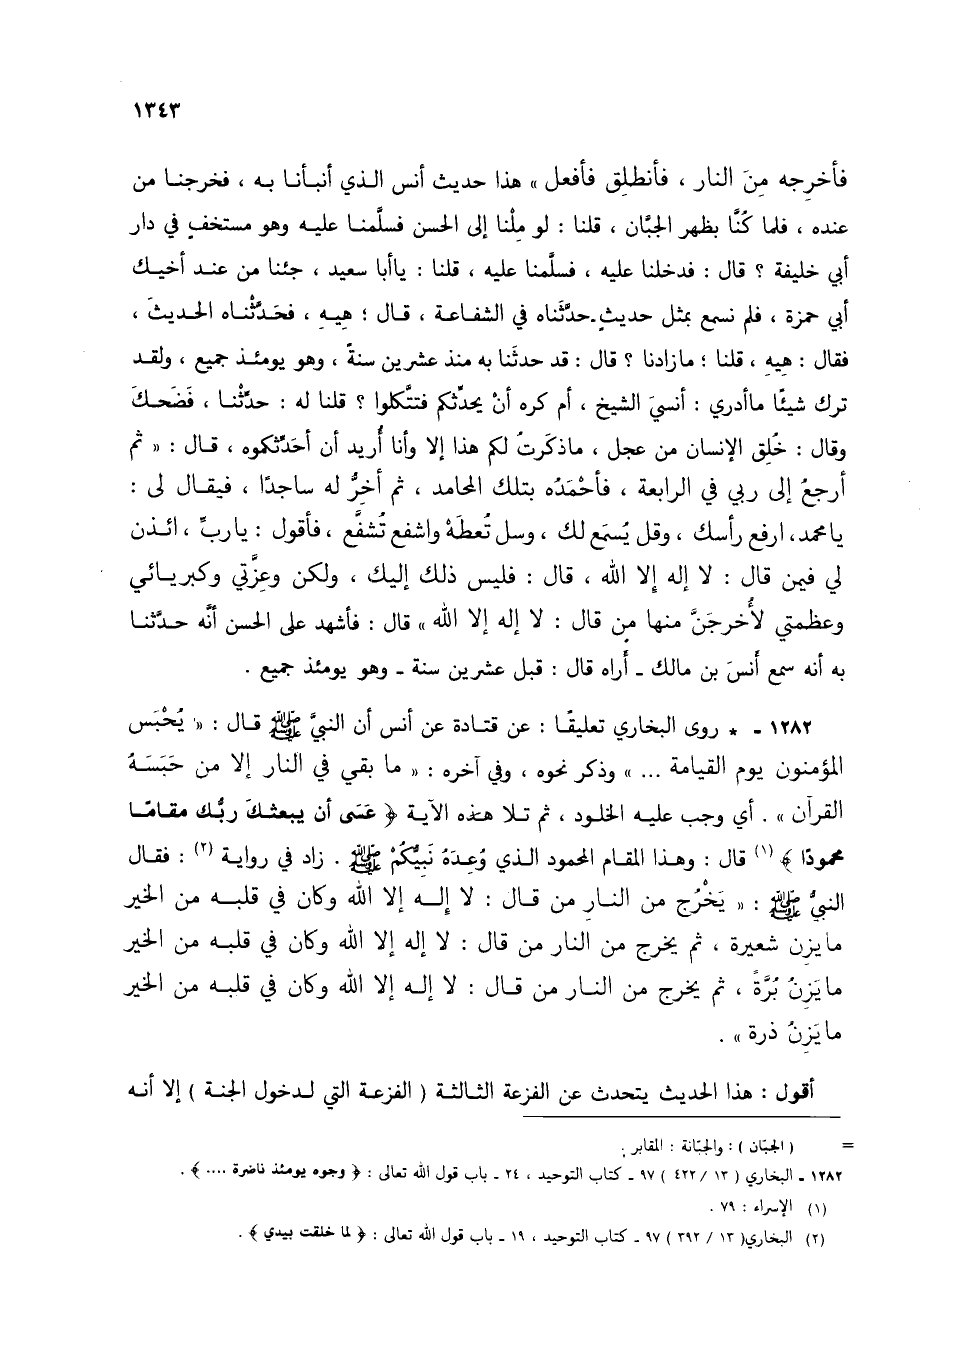 ١٣٤٣
فأخرجه مِنَ النار ، فأنطلِق فأفعل » هذا حديث أنس الذي أنبأنا به ، فخرجنا من
عنده ، فلما كُنَّا بظهر الجبَّان ، قلنا : لو مِلْنا إلى الحسن فسلَّمنا عليه وهو مستخفٍ في دار
أبي خليفة ؟ قال : فدخلنا عليه ، فسلَّمنا عليه ، قلنا : ياأبا سعيد ، جئنا من عند أخيك
أبي حمزة ، فلم نسمع بمثل حديثٍ حدَّثَناه في الشفاعة ، قال ؛ هِيهِ ، فحَدَّثْناه الحديثَ ،
فقال : هِيهِ ، قلنا ؛ مازادنا ؟ قال : قد حدثَنا به منذ عشرين سنةً ، وهو يومئذ جميع ، ولقد
ترك شيئًا ماأدري : أنسيَ الشيخ ، أم كره أنْ يحدِّثكم فتتَّكلوا ؟ قلنا له : حدِّثْنا ، فَضَحكَ
وقال : خُلِق الإنسان من عجل ، ماذكَرتُ لكم هذا إلا وأنا أُريد أن أحَدِّثكموه ، قال : « ثم
أرجعُ إلى ربي في الرابعة ، فأحْمَدُه بتلك المحامد ، ثم أخِرُّ له ساجدًا ، فيقال لى :
يامحمد، ارفع رأسك ، وقل يُسمَع لك ، وسل تُعطَهْ واشفع تُشفَّع ، فأقول : ياربِّ ، ائذن
لي فيمن قال : لا إله إلا الله ، قال : فليس ذلك إليك ، ولكن وعزَّتي وكبريائي
وعظمتي لأُخرجَنَّ منها مِن قال : لا إله إلا الله » قال : فأشهد على الحسن أنَّه حدَّثنا
به أنه سمع أَنسَ بن مالك ـ أُراه قال : قبل عشرين سنة ـ وهو يومئذ جميع .
١٢٨٢ ـ ٭ روى البخاري تعليقًا : عن قتادة عن أنس أن النبيَّ ﷺ قال : « يُحْبَس
المؤمنون يوم القيامة ... » وذكر نحوه ، وفي آخره : « ما بقي في النار إلا من حَبَسَهُ
القرآن » . أي وجب عليه الخلود ، ثم تلا هذه الآية ﴿ عَسَى أن يبعثكَ ربُّك مقامًا
محمودًا ﴾ (١) قال : وهذا المقام المحمود الذي وُعِدَهُ نَبيُّكُمْ ﷺ . زاد في رواية (٢) : فقال
النبيُّ ﷺ : « يَخْرُج من النارِ من قال : لا إله إلا الله وكان في قلبه من الخير
مايزن شعيرة ، ثم يخرج من النار من قال : لا إله إلا الله وكان في قلبه من الخير
مايَزنُ بُرَّةً ، ثم يخرج من النار من قال : لا إله إلا الله وكان في قلبه من الخير
مايَزِنُ ذرة » .
أقول : هذا الحديث يتحدث عن الفزعة الثالثة ( الفزعة التي لدخول الجنة ) إلا أنه
= ( الجبّان ) : والجبّانة : المقابر .
١٢٨٢ ـ البخاري ( ١٣ / ٤٢٢ ) ٩٧ ـ كتاب التوحيد ، ٢٤ ـ باب قول الله تعالى : ﴿ وجوه يومئذ ناضرة .... ﴾ .
(١) الإسراء : ٧٩ .
(٢) البخاري( ١٣ / ٣٩٢ ) ٩٧ ـ كتاب التوحيد ، ١٩ ـ باب قول الله تعالى : ﴿ لما خلقت بيدي ﴾ .